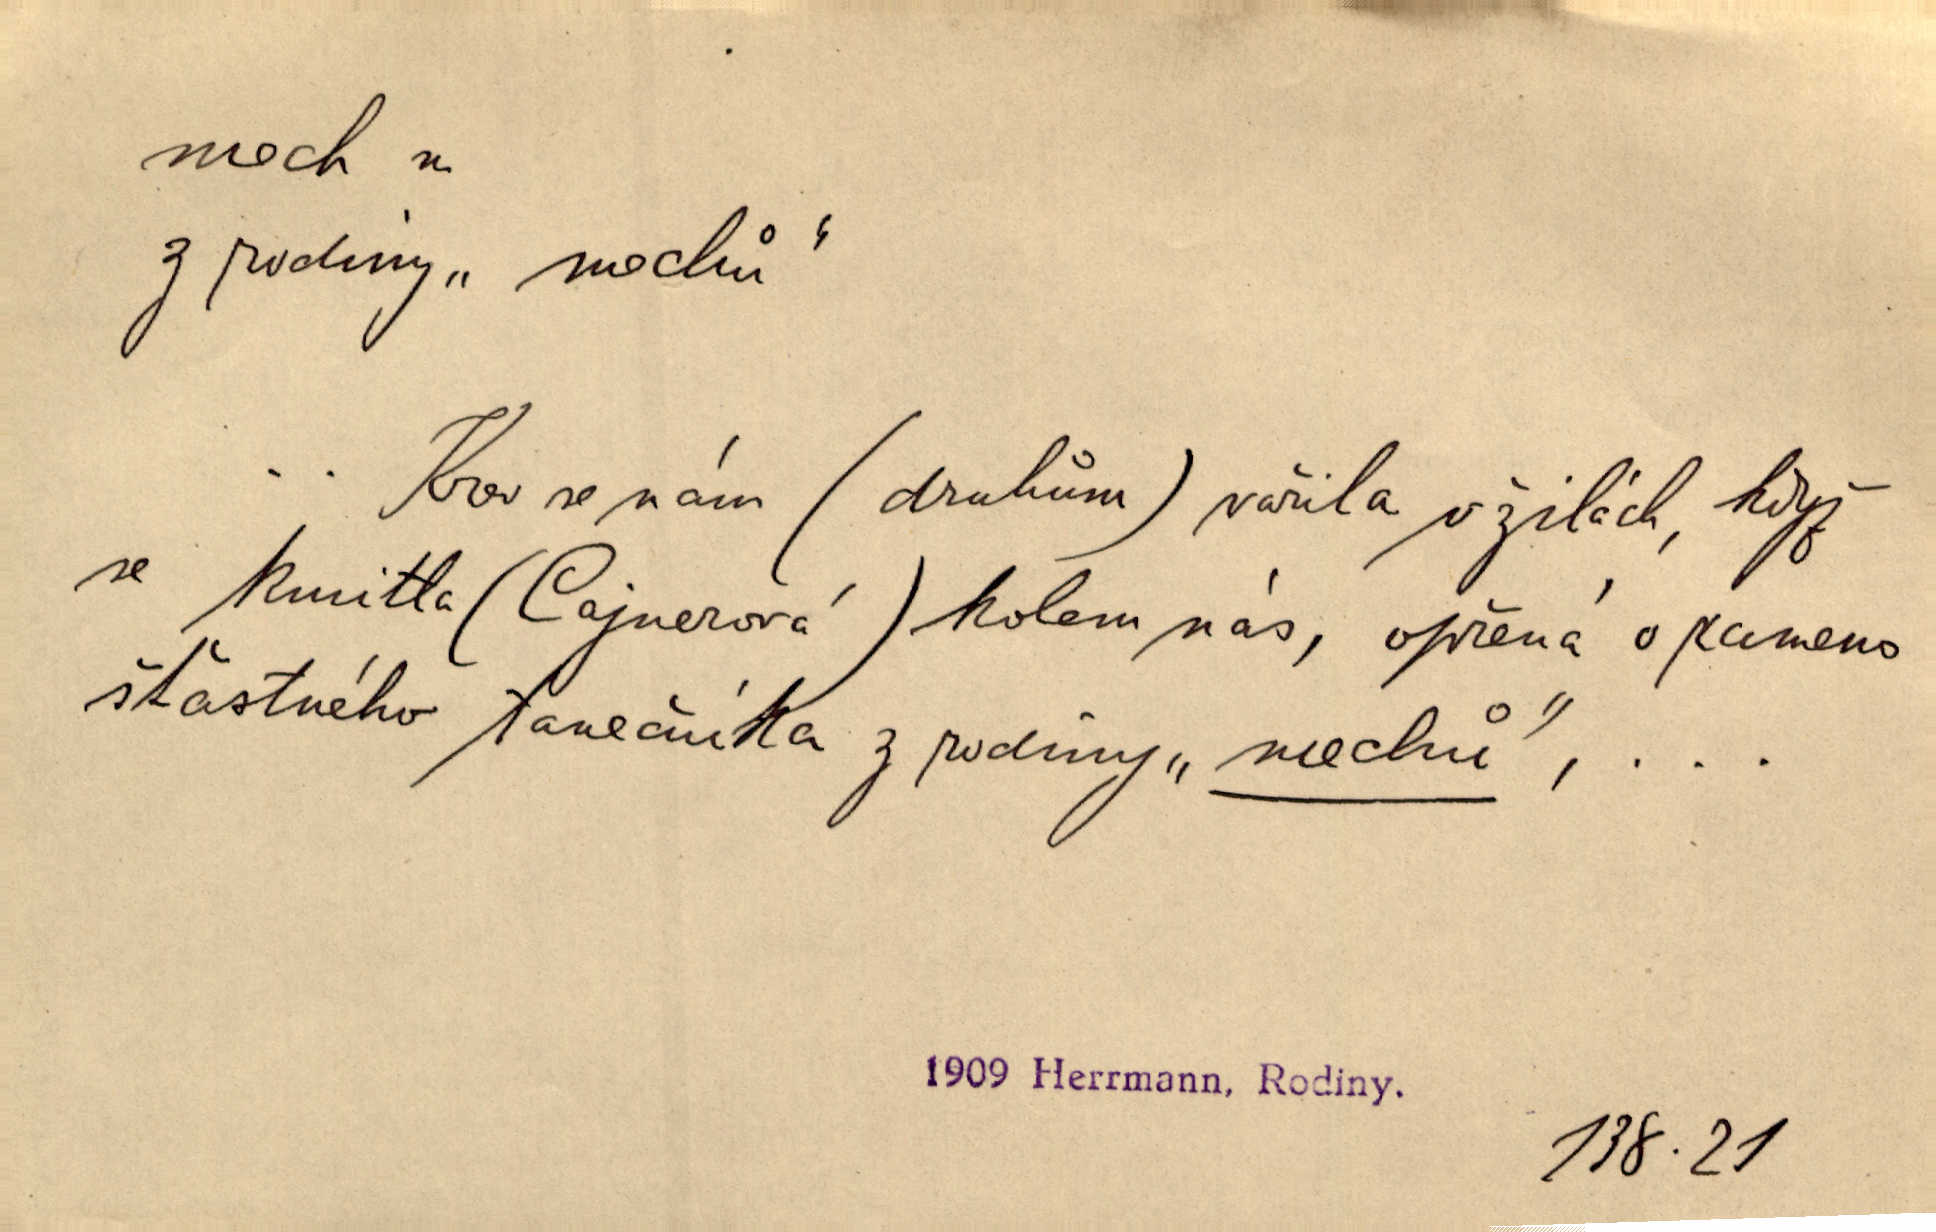 mech m
z rodiny „mechů“
.. Krev se nám (druhům) vařila v žilách, když
se kmitla (Cajnerová) kolem nás, opřená o rameno
šťastného tanečníka z rodiny „mechů“, ...
1909 Herrmann, Rodiny.
138.21